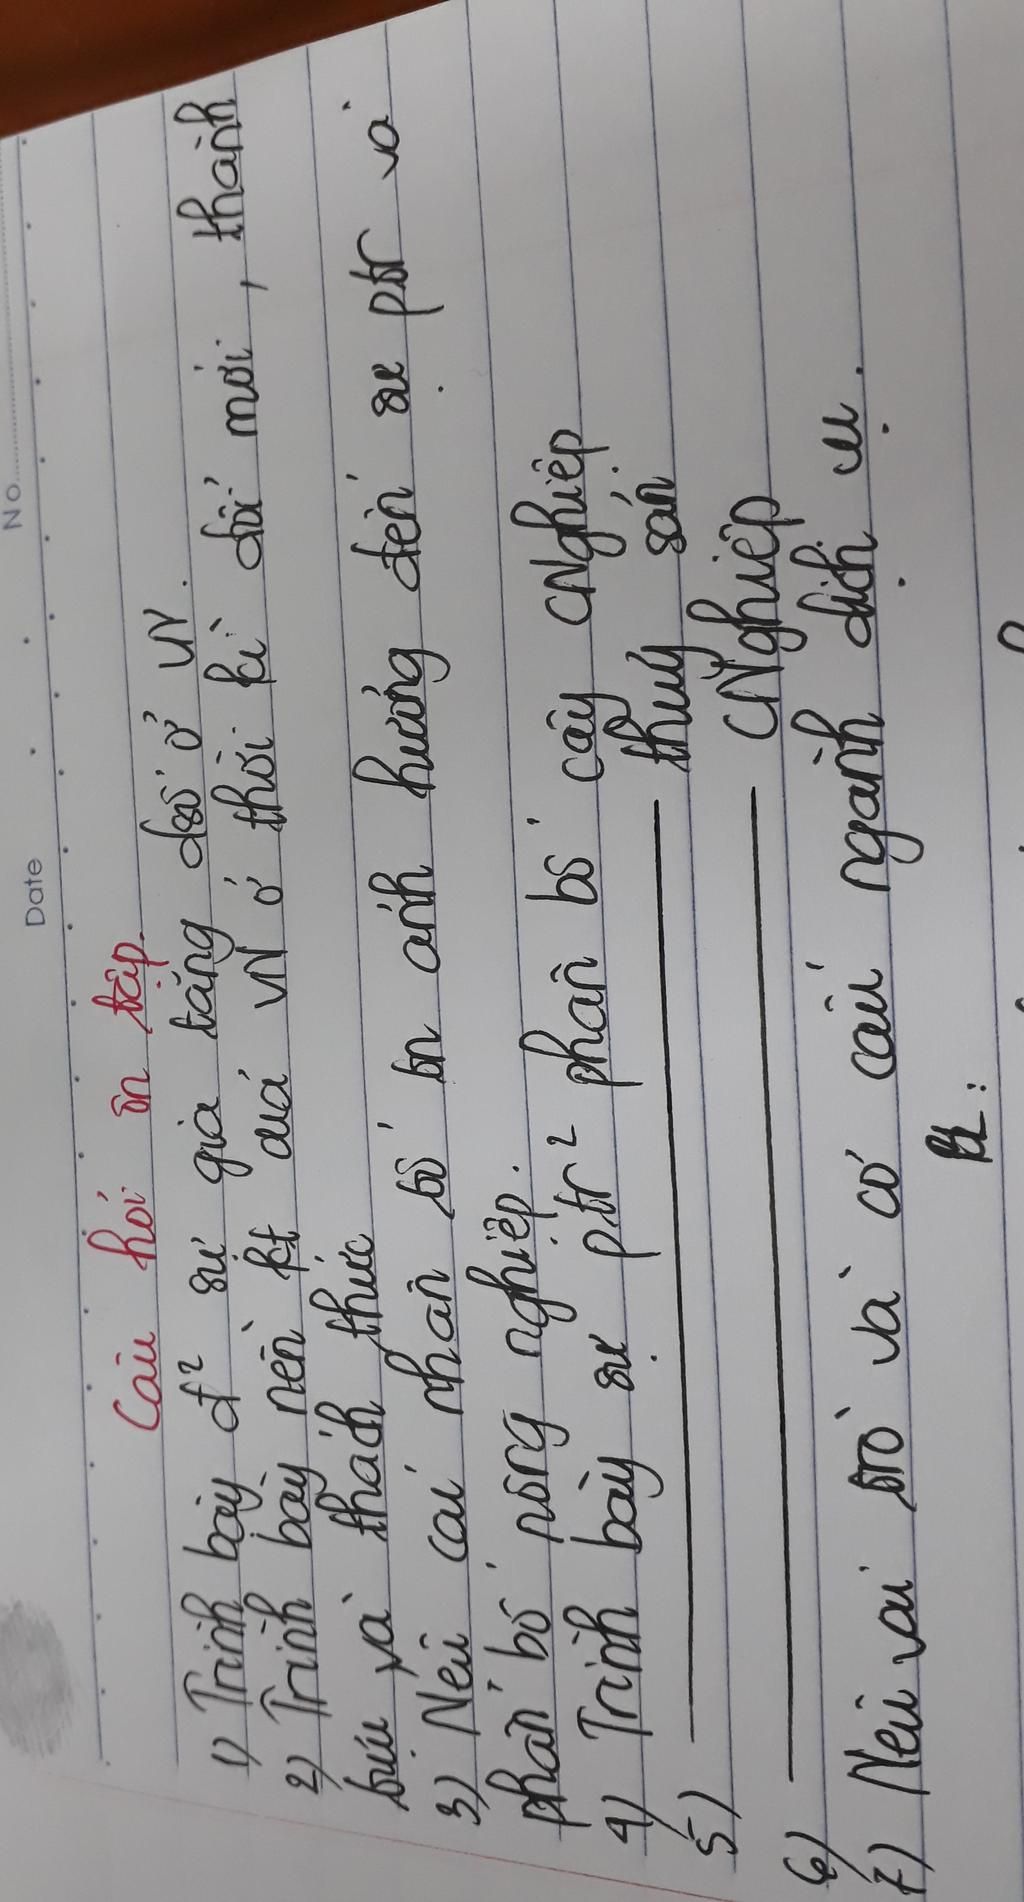 No
Date
Câu hỏi ôn tập.
1) Trình bày đ² sự gia tăng dsố ở VN.
2) Trình bày nền kt của VN ở thời kì đổi mới, thành
tựu và thách thức
3) Nêu các nhân tố tn ảnh hưởng đến sự ptr và
phân bố nông nghiệp.
4) Trình bày sự ptr² phân bố cây CNghiệp
5) ——— thuỷ sản
6) ——— CNghiệp
7) Nêu vai trò và cơ cấu ngành dịch vụ.